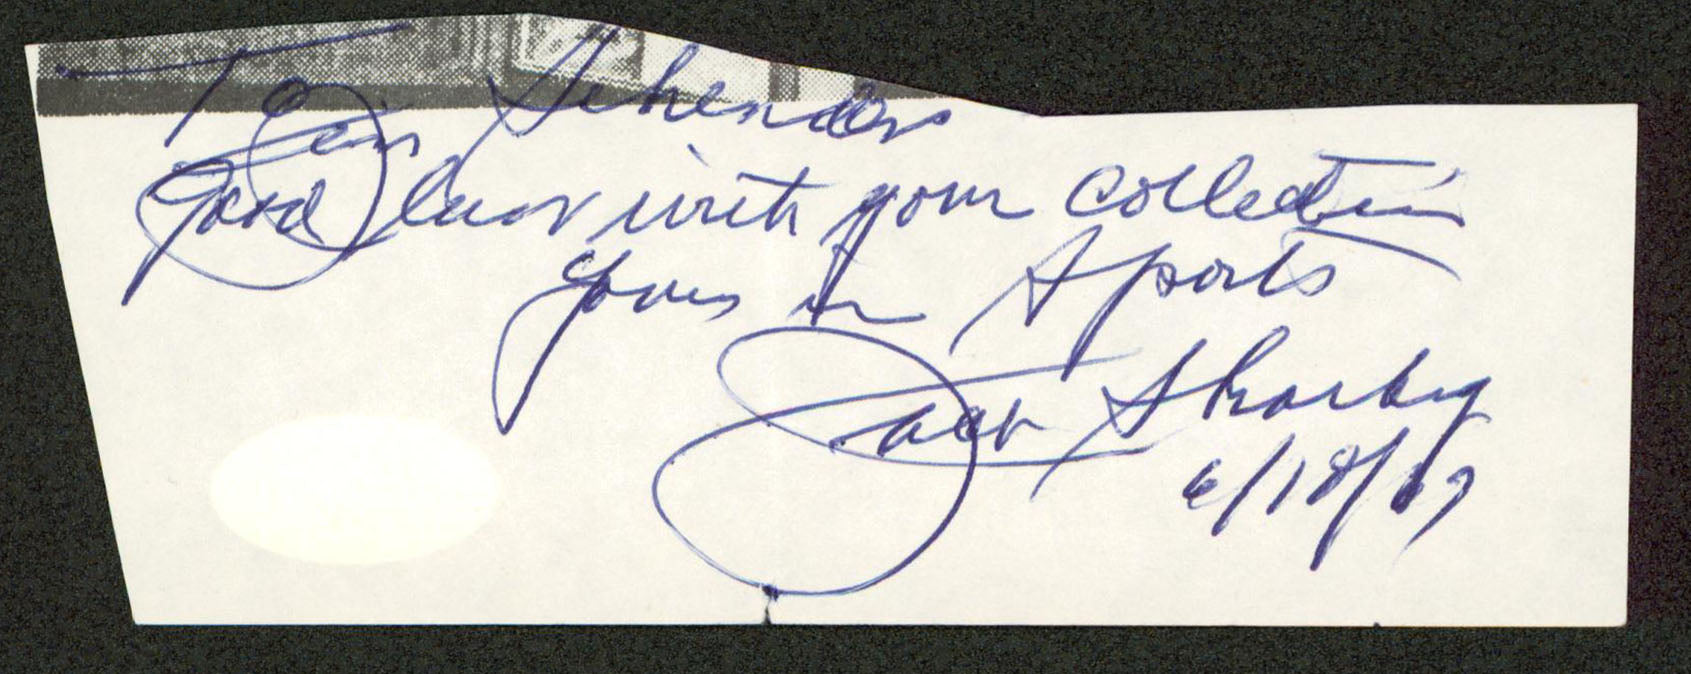 To Jim Schendor
Good luck with your collection
Yours in Sports
Jack Sharkey
6/18/67